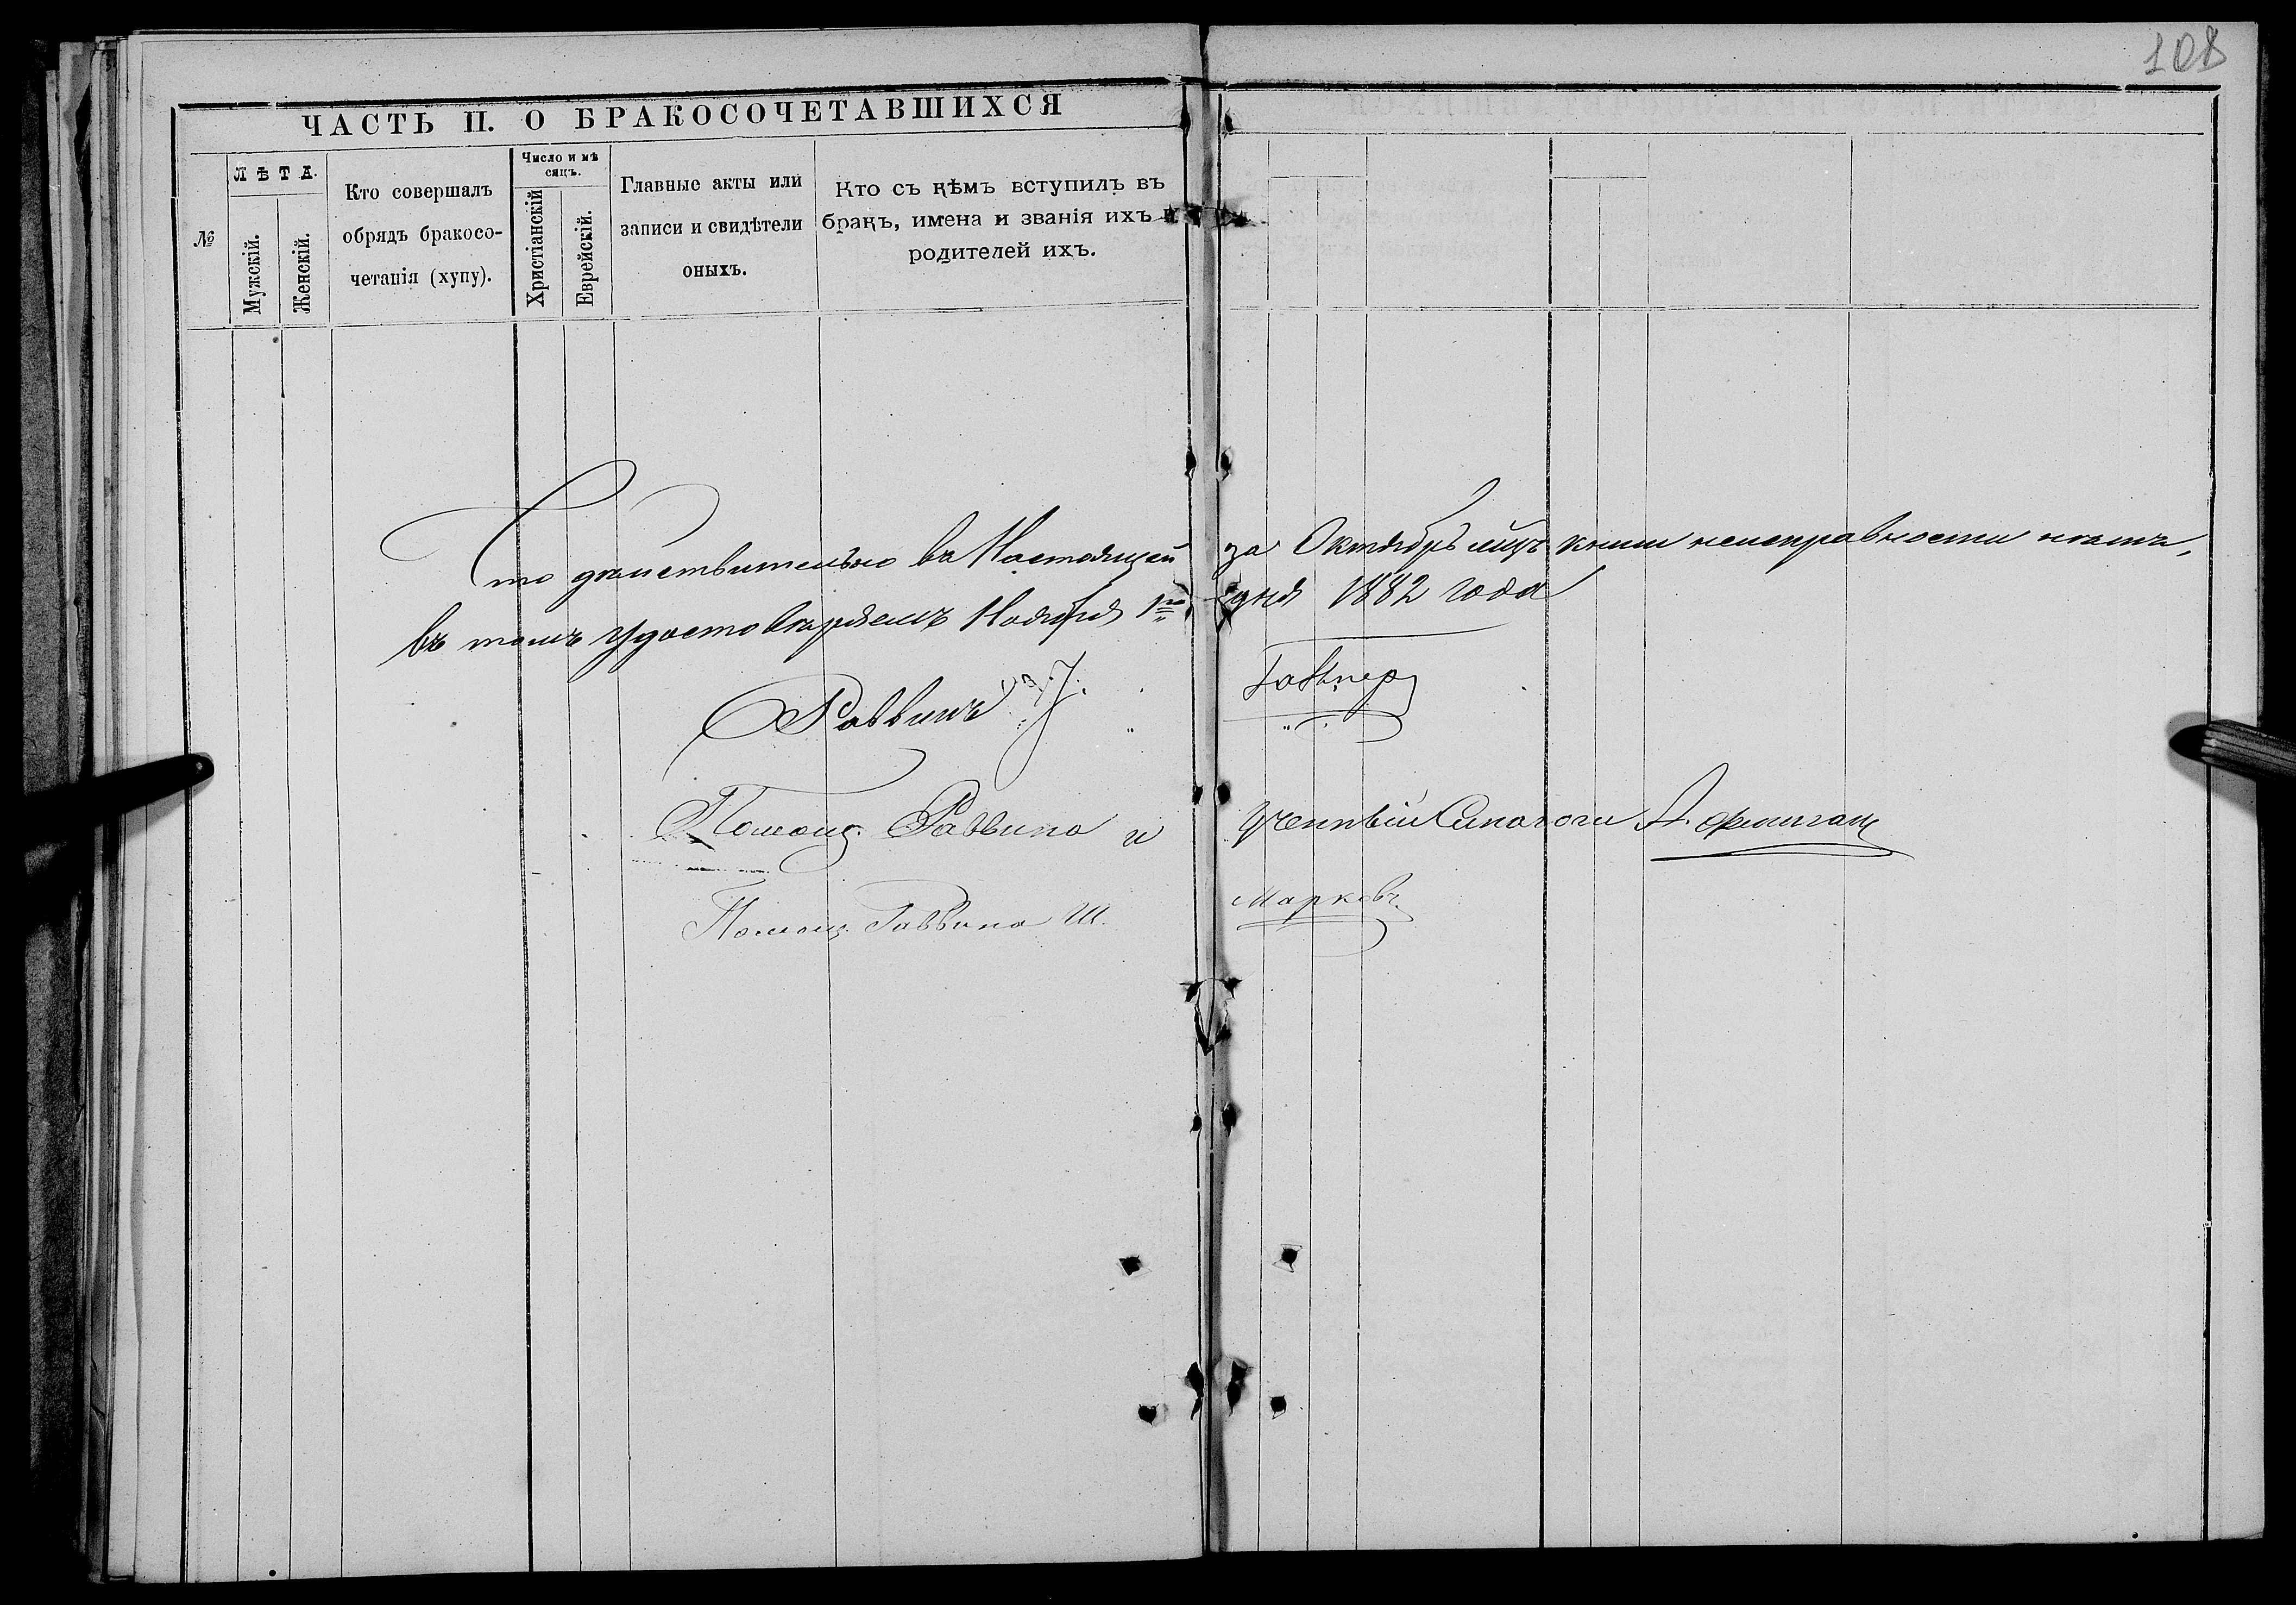 108
ЧАСТЬ II. О БРАКОСОЧЕТАВШИХСЯ
№
ЛѢТА.
Мужскій.
Женскій.
Кто совершалъ
обрядъ бракосо-
четанія (хупу).
Число и мѣ
сяцъ.
Христіанскій
Еврейскій.
Главные акты или
записи и свидѣтели
оныхъ.
Кто съ кѣмъ вступилъ въ
бракъ, имена и званія ихъ и
родителей ихъ.
Что действительно въ Настоящей за Октябрь мцъ книги неисправности нѣтъ,
въ томъ удостовѣряемъ Ноября 1го дня 1882 года
Раввинъ
Помощ. Раввина и Ученный Синагоги А.
Помощ. Раввина Ш. Марковъ